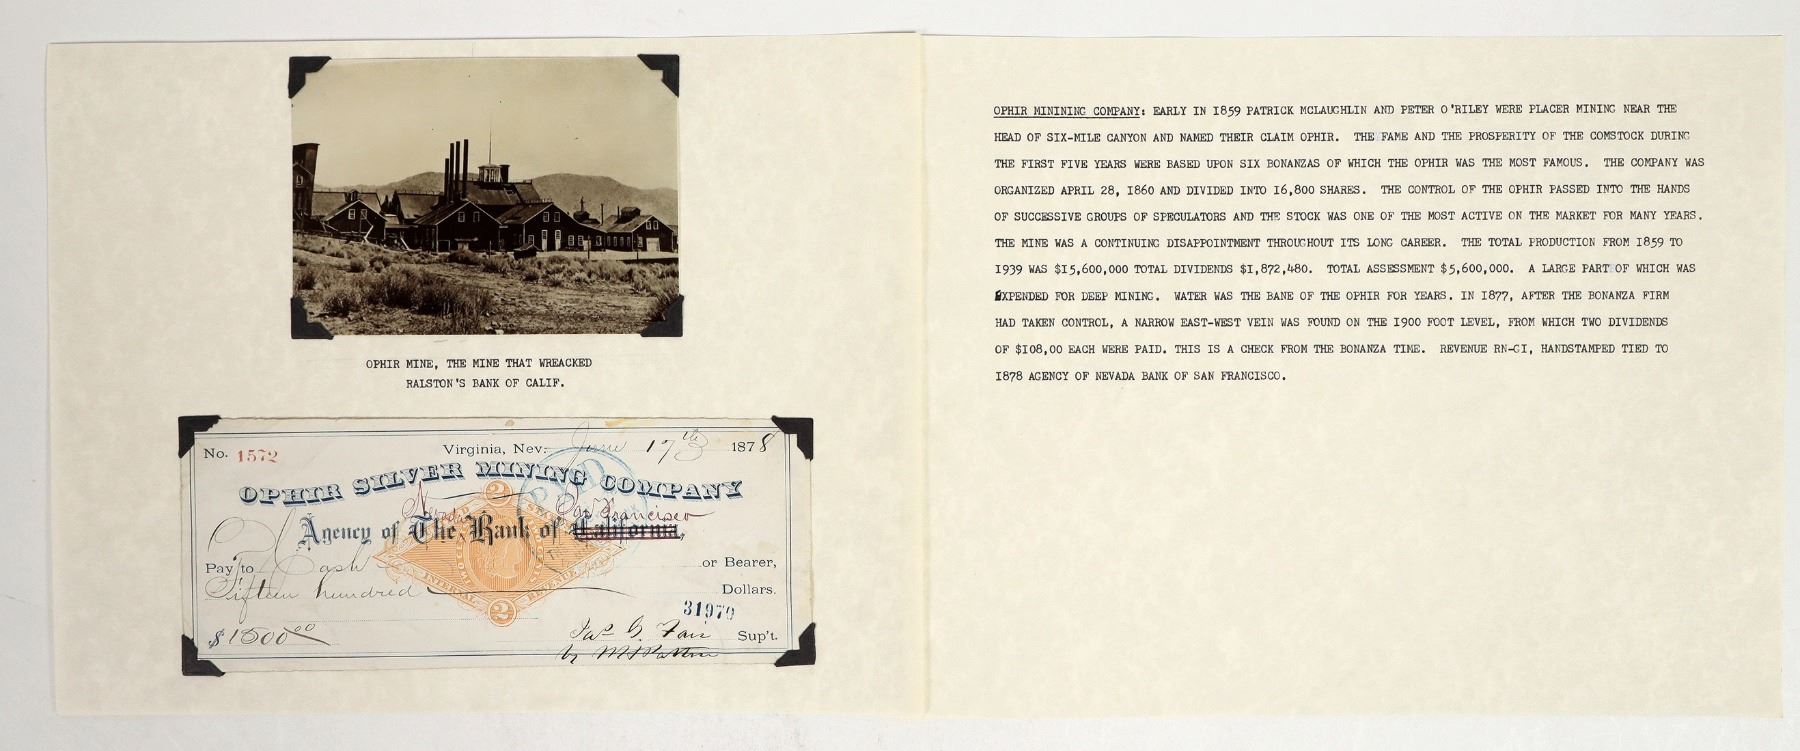 OPHIR MINE, THE MINE THAT WREACKED
RALSTON'S BANK OF CALIF.
No. 1572
Virginia, Nev. June 17th 1878
OPHIR SILVER MINING COMPANY
Nevada San Francisco
Agency of The Bank of California,
PAID
2
INTERNAL REVENUE
Pay to Cash or Bearer,
Fifteen hundred Dollars.
2
31970
$1500.00
Jas G. Fair Sup't.
by
OPHIR MINING COMPANY: EARLY IN 1859 PATRICK MCLAUGHLIN AND PETER O'RILEY WERE PLACER MINING NEAR THE
HEAD OF SIX-MILE CANYON AND NAMED THEIR CLAIM OPHIR. THE FAME AND THE PROSPERITY OF THE COMSTOCK DURING
THE FIRST FIVE YEARS WERE BASED UPON SIX BONANZAS OF WHICH THE OPHIR WAS THE MOST FAMOUS. THE COMPANY WAS
ORGANIZED APRIL 28, 1860 AND DIVIDED INTO 16,800 SHARES. THE CONTROL OF THE OPHIR PASSED INTO THE HANDS
OF SUCCESSIVE GROUPS OF SPECULATORS AND THE STOCK WAS ONE OF THE MOST ACTIVE ON THE MARKET FOR MANY YEARS.
THE MINE WAS A CONTINUING DISAPPOINTMENT THROUGHOUT ITS LONG CAREER. THE TOTAL PRODUCTION FROM 1859 TO
1939 WAS $15,600,000 TOTAL DIVIDENDS $1,872,480. TOTAL ASSESSMENT $5,600,000. A LARGE PART OF WHICH WAS
EXPENDED FOR DEEP MINING. WATER WAS THE BANE OF THE OPHIR FOR YEARS. IN 1877, AFTER THE BONANZA FIRM
HAD TAKEN CONTROL, A NARROW EAST-WEST VEIN WAS FOUND ON THE 1900 FOOT LEVEL, FROM WHICH TWO DIVIDENDS
OF $108,00 EACH WERE PAID. THIS IS A CHECK FROM THE BONANZA TIME. REVENUE RN-G1, HANDSTAMPED TIED TO
1878 AGENCY OF NEVADA BANK OF SAN FRANCISCO.